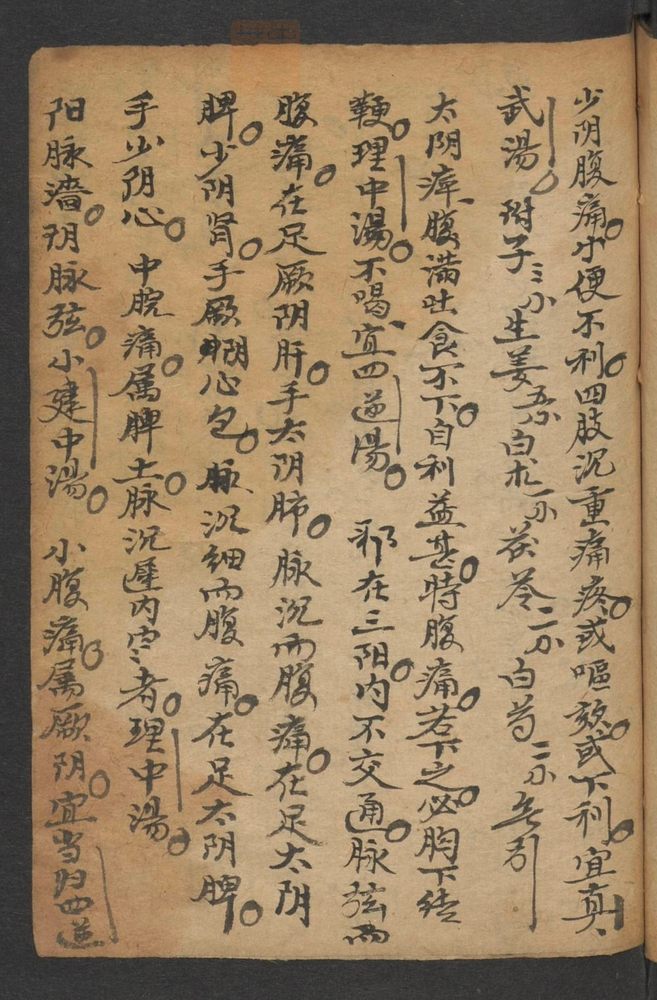 少阴腹痛。小便不利。四肢沉重痛疼。或嘔欬。或下利。宜真
武湯。附子三小生姜五小白朮一小茯苓二小白芍二小
太阴瘴、腹满吐食不下。自利益甚。時腹痛。若下之。必胸下结
鞕。理中湯。不喝、宜四逆湯。 邪在三阳。内不交通。脉弦而
腹痛。在足厥阴肝。手太阴肺。脉沉而腹痛。在足太阴
脾。少阴肾。手厥阴心包。脉沉细而腹痛。在足太阴脾。
手少阴心。 中脘痛。属脾土。脉沉遲内寒者。理中湯。
阳脉濇。阴脉弦。小建中湯。 小腹痛。属厥阴。宜当归四逆